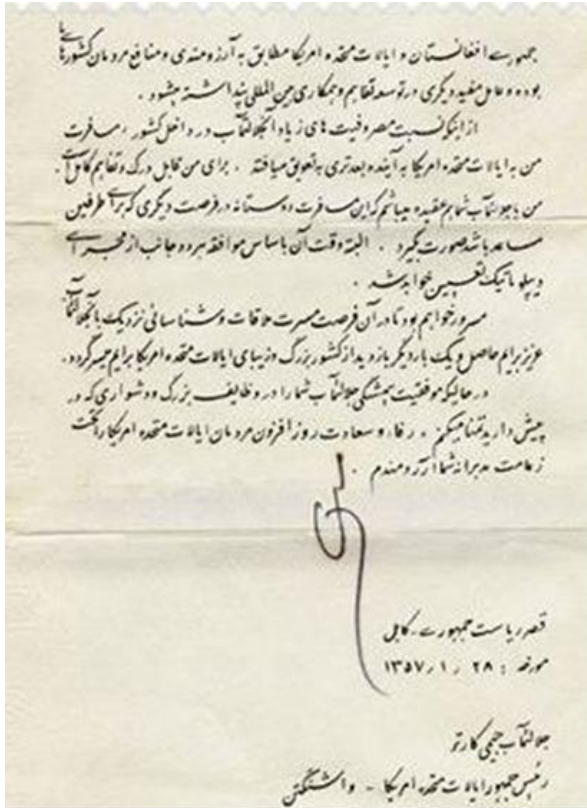 جمهوری افغانستان و ایالات متحده امریکا مطابق به آرزومندی و منافع مردمان کشورهای ما
بوده و عامل مفید دیگری در توسعه تفاهم و همکاری بین المللی پنداشته میشود .
از اینکه نسبت مصروفیت های زیاد آنجلالتمآب در داخل کشور ، مسافرت
من به ایالات متحده امریکا به آینده بعدتری به تعویق میافتد . برای من قابل درک و تفاهم کامل است .
من با جلالتمآب شما هم عقیده میباشم که این مسافرت دوستانه در فرصت دیگری که برای طرفین
مساعد باشد صورت گیرد . البته وقت آن باساس موافقه هر دو جانب از مجرای
دیپلوماتیک تعیین خواهد شد .
مسرور خواهم بود تا در آن فرصت مسرت ملاقات و شناسائی نزدیک با آنجلالتمآب
عزیز برایم حاصل و یک بار دیگر بازدید از کشور بزرگ و زیبای ایالات متحده امریکا برایم میسر گردد .
در حالیکه موفقیت همیشگی جلالتمآب شما را در وظایف بزرگ و دشواری که در
پیش دارید تمنا میکنم . رفاه و سعادت روز افزون مردمان ایالات متحده امریکا را تحت
زعامت مدبرانه شما آرزومندم .
قصر ریاست جمهوری - کابل
مورخه : ۲۸ ر ۱ ر ۱۳۵۷
جلالتمآب جیمی کارتر
رئیس جمهور ایالات متحده امریکا - واشنگتن